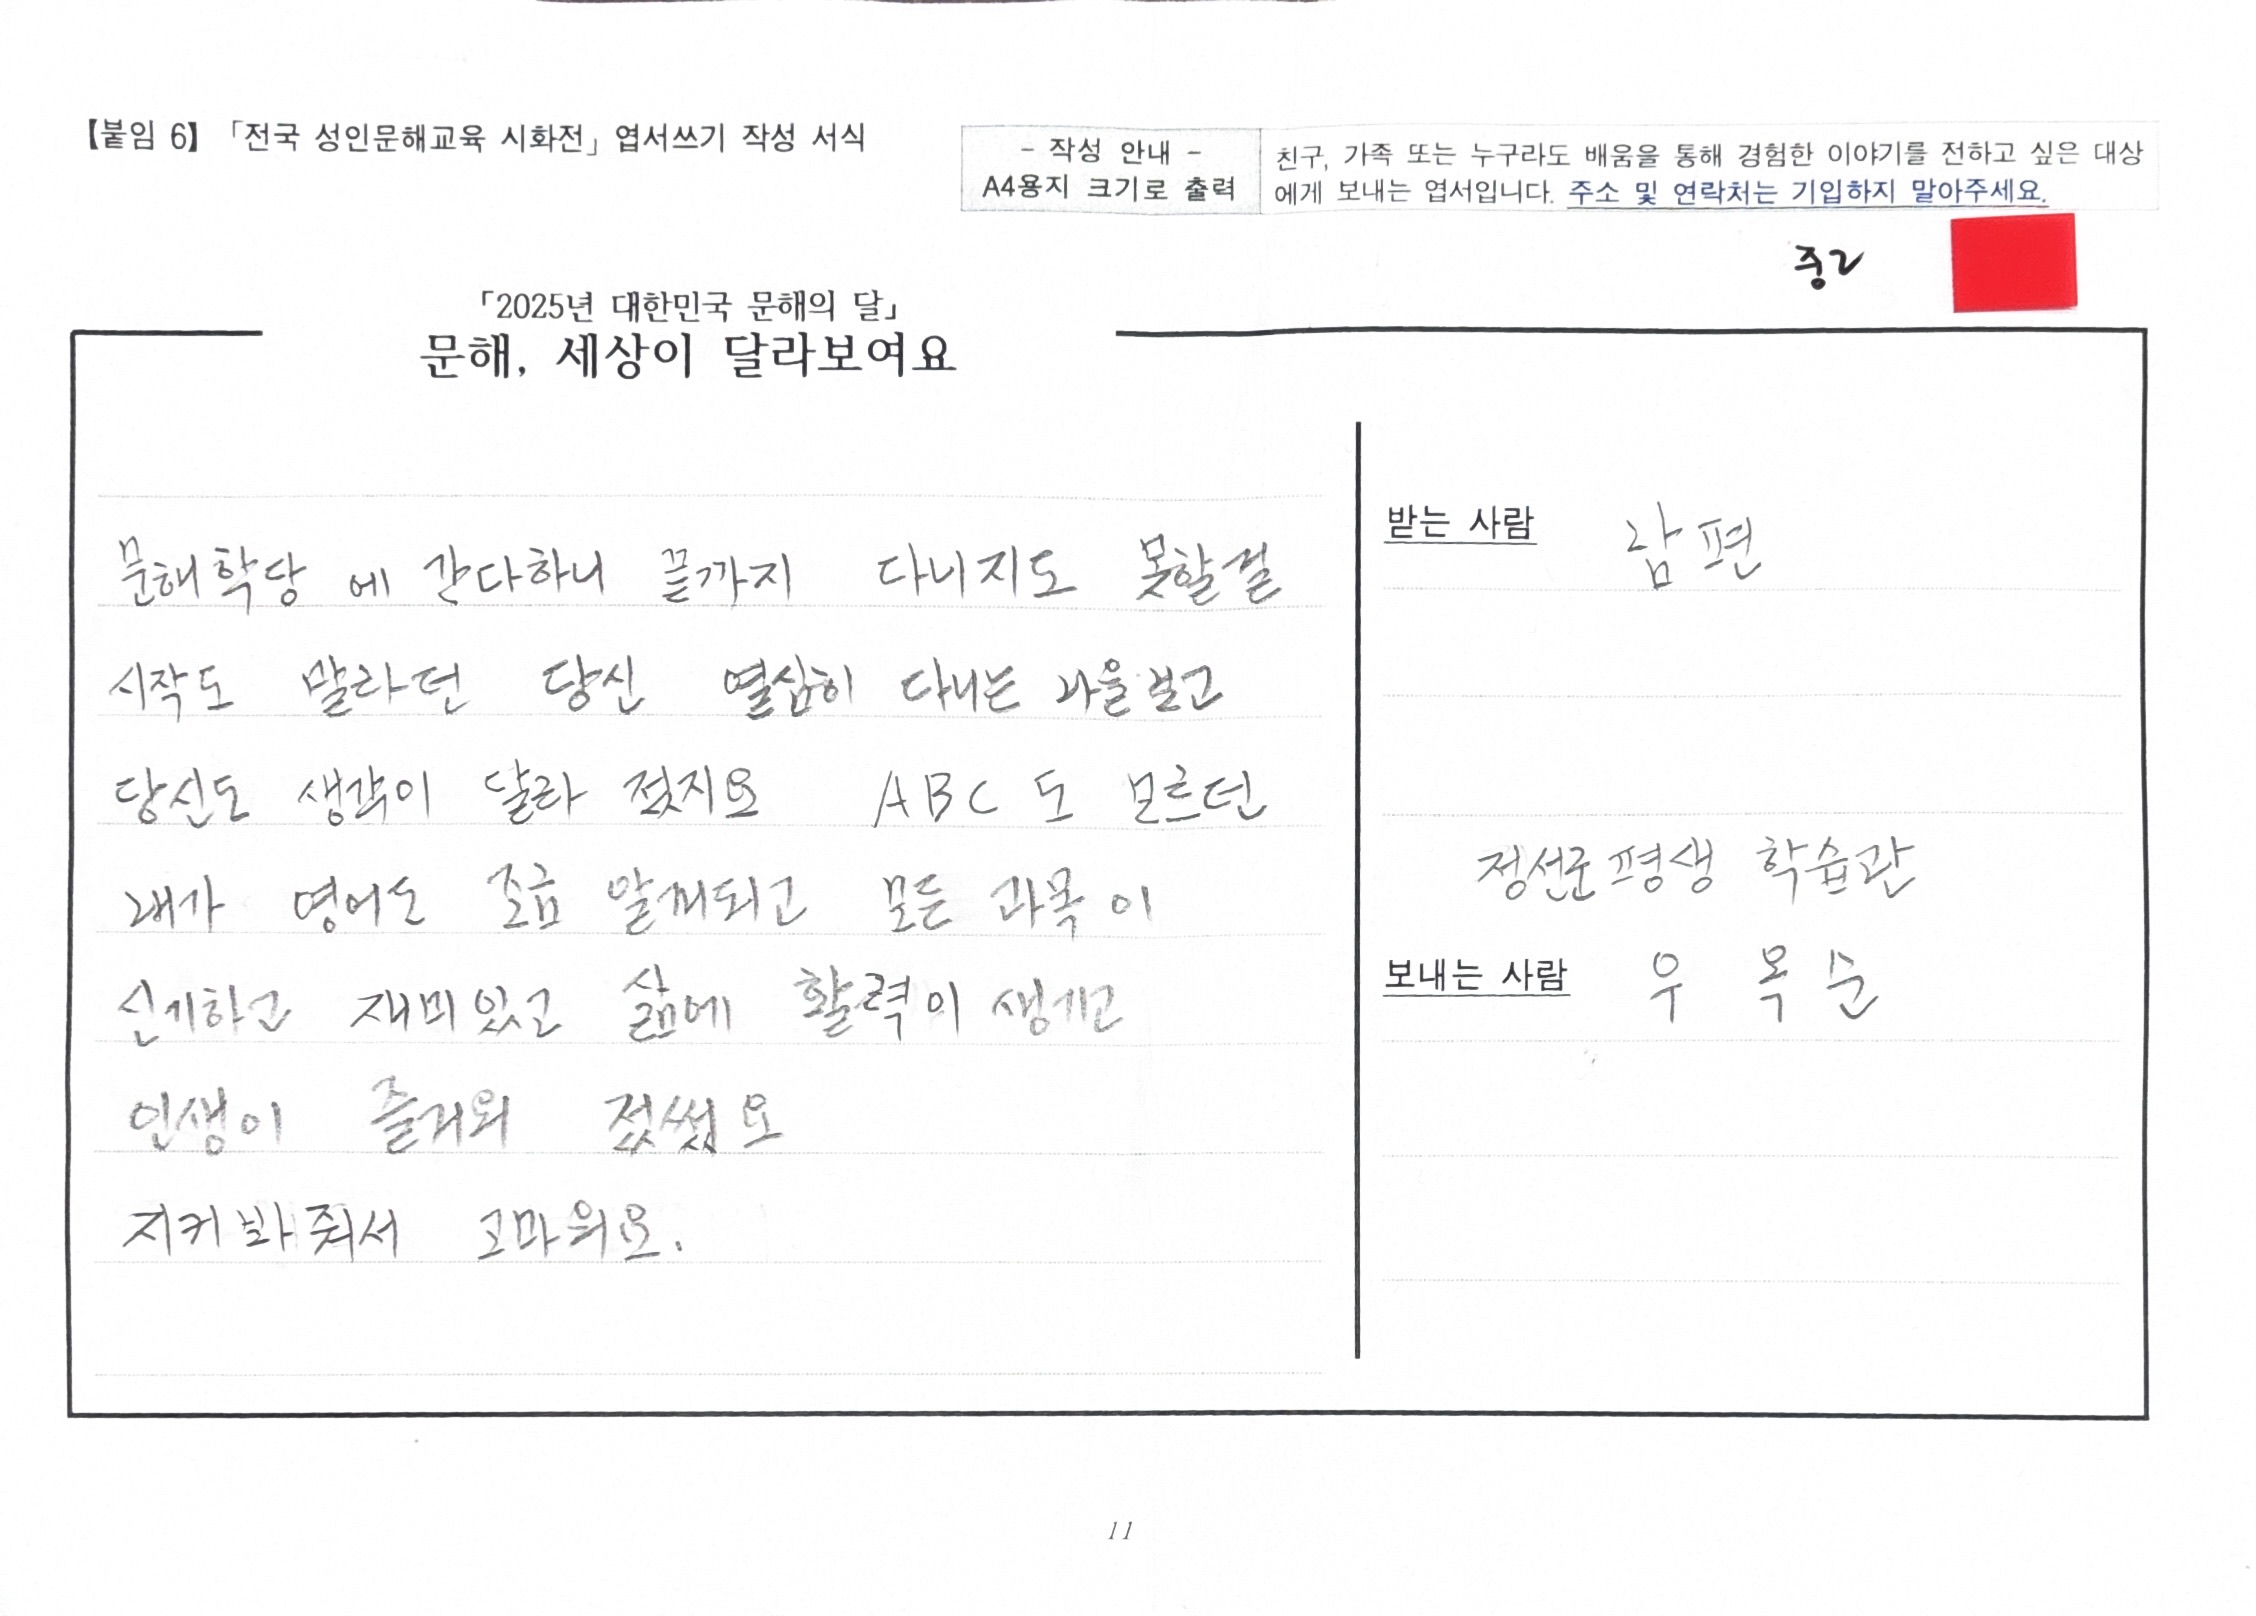 【붙임 6】 「전국 성인문해교육 시화전」 엽서쓰기 작성 서식
- 작성 안내 -
A4용지 크기로 출력
친구, 가족 또는 누구라도 배움을 통해 경험한 이야기를 전하고 싶은 대상
에게 보내는 엽서입니다. 주소 및 연락처는 기입하지 말아주세요.
중2
「2025년 대한민국 문해의 달」
문해, 세상이 달라보여요
문해학당 에 간다하니 끝까지 다니지도 못할걸
시작도 말라던 당신 열심히 다니는 나을보고
당신도 생각이 달라 젔지요 ABC 도 모르던
내가 영어도 조금 알게되고 모든 과목 이
신기하고 재미있고 삶에 활력이 생기고
인생이 즐거워 젔썼요
지켜봐줘서 고마워요.
받는 사람 남편
정선군평생 학습관
보내는 사람 우 옥 순
11